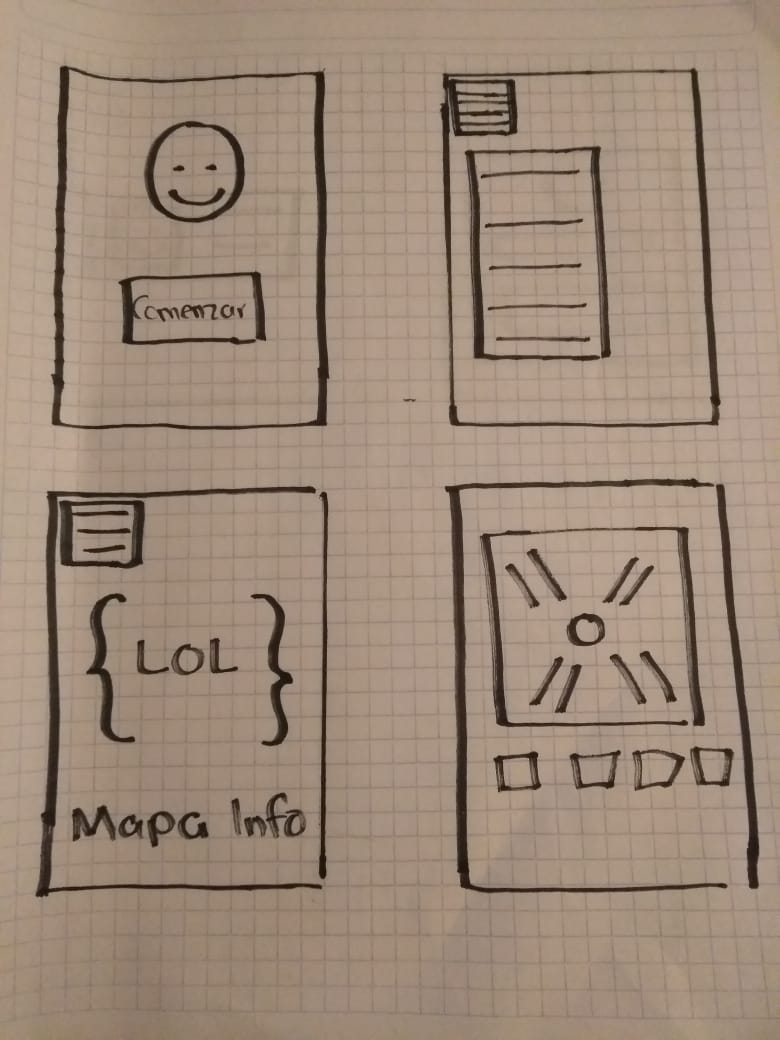 Comenzar
{ LOL }
Mapa Info